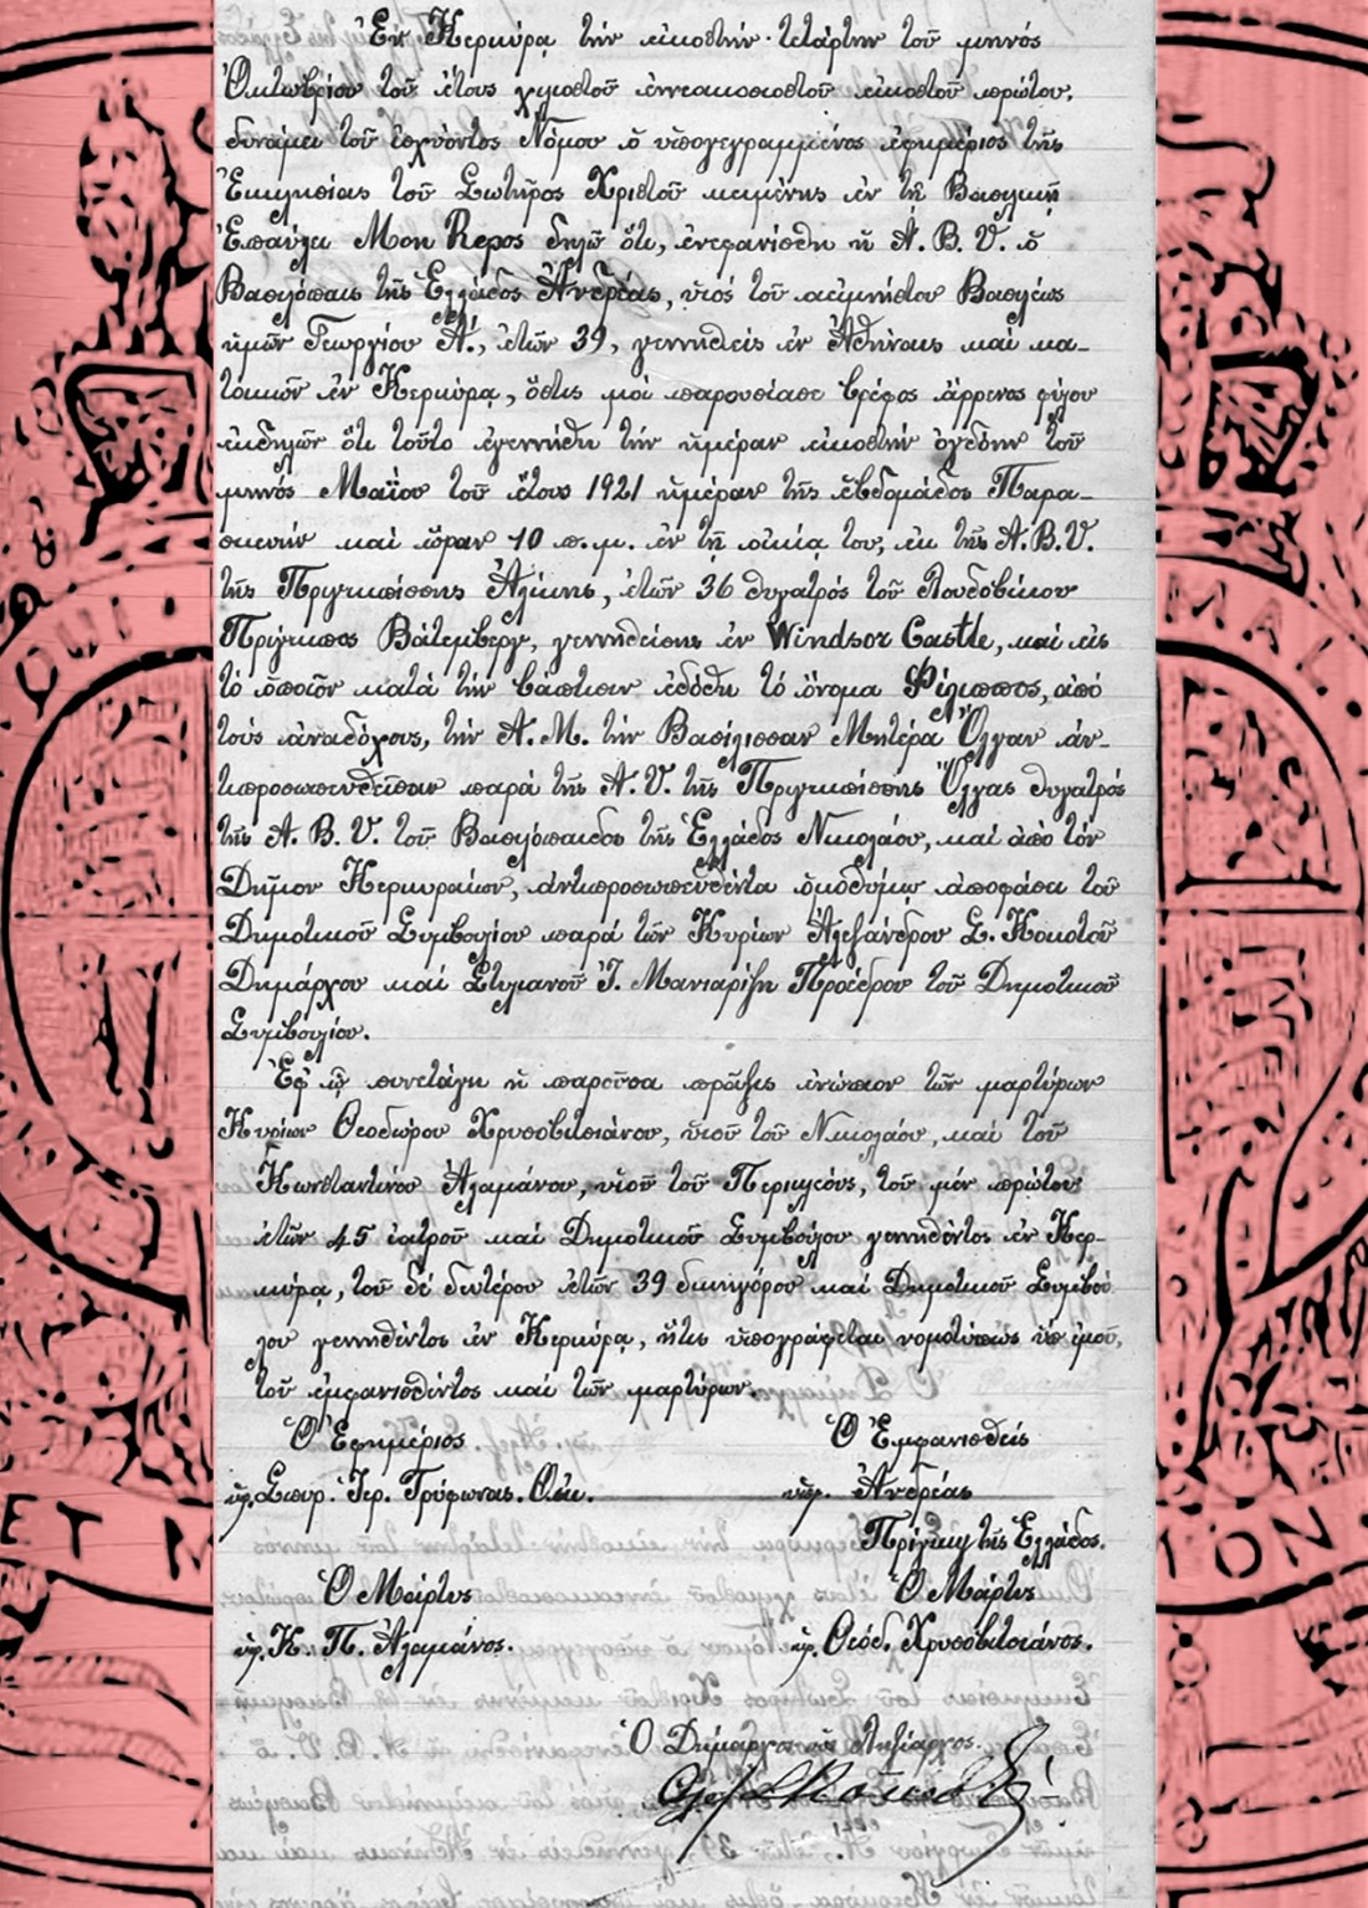 Ἐν Κερκύρᾳ τήν εἰκοστήν τετάρτην τοῦ μηνός
Ὀκτωβρίου τοῦ ἔτους χιλιοστοῦ ἐννεακοσιοστοῦ εἰκοστοῦ πρώτου,
δυνάμει τοῦ ἰσχύοντος Νόμου ὁ ὑπογεγραμμένος ἐφημέριος τῆς
Ἐκκλησίας τοῦ Σωτῆρος Χριστοῦ κειμένης ἐν τῇ Βασιλικῇ
Ἐπαύλει Mon Repos δηλῶ ὅτι, ἐνεφανίσθη ἡ Α. Β. Υ. ὁ
Βασιλόπαις τῆς Ἑλλάδος Ἀνδρέας, υἱός τοῦ ἀειμνήστου Βασιλέως
ἡμῶν Γεωργίου Α΄., ἐτῶν 39, γεννηθείς ἐν Ἀθήναις καί κα-
τοικῶν ἐν Κερκύρᾳ, ὅστις μοί παρουσίασε βρέφος ἄρρενος φύλου
ἐκδηλῶν ὅτι τοῦτο ἐγεννήθη τήν ἡμέραν εἰκοστήν ὀγδόην τοῦ
μηνός Μαΐου τοῦ ἔτους 1921 ἡμέραν τῆς ἑβδομάδος Παρα-
σκευήν καί ὥραν 10 π.μ. ἐν τῇ οἰκίᾳ του, ἐκ τῆς Α. Β. Υ.
τῆς Πριγκιπίσσης Ἀλίκης, ἐτῶν 36 θυγατρός τοῦ Λουδοβίκου
Πρίγκιπος Βάτεμβεργ, γεννηθείσης ἐν Windsor Castle, καί εἰς
τό ὁποῖον κατά τήν βάπτισιν ἐδόθη τό ὄνομα Φίλιππος, ἀπό
τούς ἀναδόχους, τήν Α. Μ. τήν Βασίλισσαν Μητέρα Ὄλγαν ἀν-
τιπροσωπευθεῖσαν παρά τῆς Α. Υ. τῆς Πριγκιπίσσης Ὄλγας θυγατρός
τῆς Α. Β. Υ. τοῦ Βασιλόπαιδος τῆς Ἑλλάδος Νικολάου, καί ἀπό τόν
Δῆμον Κερκυραίων, ἀντιπροσωπευθέντα ὁμοθύμῳ ἀποφάσει τοῦ
Δημοτικοῦ Συμβουλίου παρά τῶν Κυρίων Ἀλεξάνδρου Σ. Κοκοτοῦ
Δημάρχου καί Στυλιανοῦ Ἰ. Μανιαρίζη Προέδρου τοῦ Δημοτικοῦ
Συμβουλίου.
Ἐφ' ᾧ συνετάγη ἡ παροῦσα πρᾶξις ἐνώπιον τῶν μαρτύρων
Κυρίων Θεοδώρου Χρυσοβιτσιάνου, υἱοῦ τοῦ Νικολάου, καί τοῦ
Κωνσταντίνου Ἀλαμάνου, υἱοῦ τοῦ Περικλέους, τοῦ μέν πρώτου
ἐτῶν 45 ἰατροῦ καί Δημοτικοῦ Συμβούλου γεννηθέντος ἐν Κερ-
κύρᾳ, τοῦ δέ δευτέρου ἐτῶν 39 δικηγόρου καί Δημοτικοῦ Συμβού
λου γεννηθέντος ἐν Κερκύρᾳ, ἥτις ὑπογράφεται νομοτύπως ὑπ' ἐμοῦ,
τοῦ ἐμφανισθέντος καί τῶν μαρτύρων.
Ὁ Ἐφημέριος Ὁ Ἐμφανισθείς
ὑπ. Σπυρ. Ἱερ. Τρύφωνας. Οἰκ. ὑπ. Ἀνδρέας
Πρίγκιψ τῆς Ἑλλάδος.
Ὁ Μάρτυς Ὁ Μάρτυς
ὑπ. Κ. Π. Ἀλαμάνος. ὑπ. Θεόδ. Χρυσοβιτσιάνος.
Ὁ Δήμαρχος ὡς Ληξίαρχος.